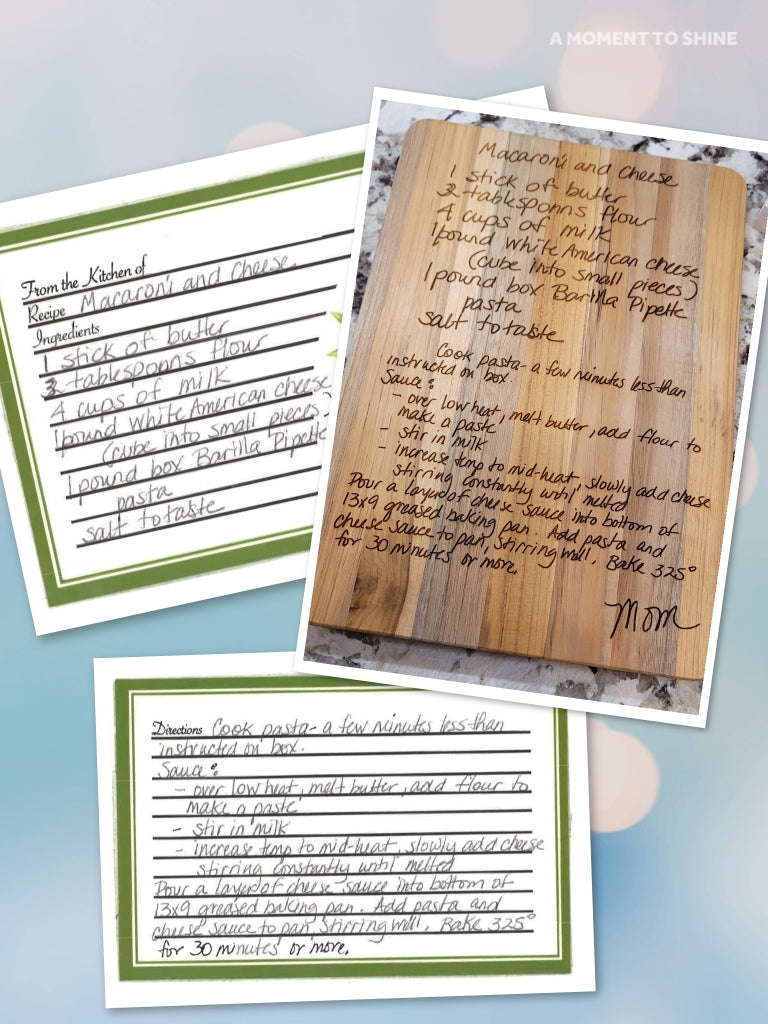 A MOMENT TO SHINE
From the Kitchen of
Recipe Macaroni and Cheese.
Ingredients
1 stick of butter
3 tablespoons flour
4 cups of milk
1 pound White American cheese
(cube into small pieces)
1 pound box Barilla Pipette
pasta
salt to taste
Macaroni and Cheese
1 stick of butter
3 tablespoons flour
4 cups of milk
1 pound White American cheese
(cube into small pieces)
1 pound box Barilla Pipette
pasta
salt to taste
Cook pasta - a few minutes less than
instructed on box.
Sauce:
- over low heat, melt butter, add flour to
make a paste
- stir in milk
- increase temp to mid-heat, slowly add cheese
stirring constantly until melted
Pour a layer of cheese sauce into bottom of
13x9 greased baking pan. Add pasta and
cheese sauce to pan, stirring well. Bake 325°
for 30 minutes or more.
Mom
Directions Cook pasta - a few minutes less than
instructed on box.
Sauce:
- over low heat, melt butter, add flour to
make a paste
- stir in milk
- increase temp to mid-heat, slowly add cheese
stirring constantly until melted
Pour a layer of cheese sauce into bottom of
13x9 greased baking pan. Add pasta and
cheese sauce to pan, stirring well. Bake 325°
for 30 minutes or more.